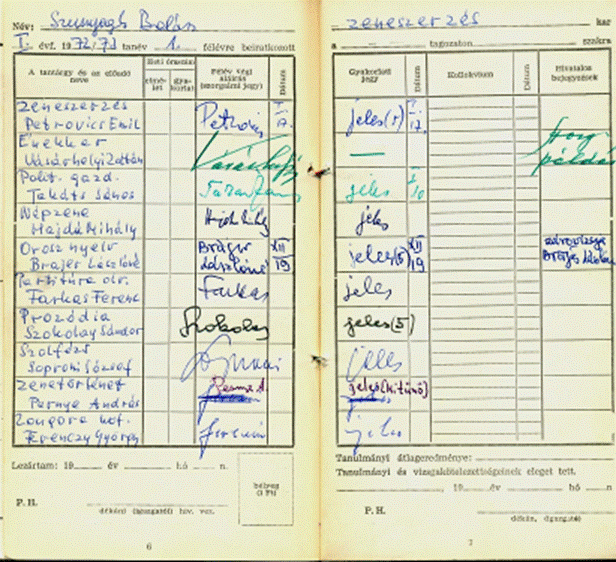 Név: Szunyogh Balázs
I. évf. 1972/73 tanév 1. félévre beiratkozott
A tantárgy és az előadó neve
Heti óraszám
elmélet
gyakorlat
Félév végi aláírás (szorgalmi jegy)
Dátum
zeneszerzés
Petrovics Emil
Petrovics
I. 17.
Énekkar
Vásárhelyi Zoltán
Vásárhelyi
Polit. gazd.
Takáts János
Népzene
Hajdú Mihály
Hajdú Mihály
Orosz nyelv
Brajer Lászlóné
Brajer Lászlóné
XII 19
Partitúra olv.
Farkas Ferenc
Farkas
Prozódia
Szokolay Sándor
Szokolay
Szolfézs
Soproni József
Soproni
zenetörténet
Pernye András
Pernye A.
Zongora köt.
Ferenczy György
Ferenczy
Lezártam: 19 év hó n.
P. H.
dékáni (igazgatói) hiv. vez.
bélyeg (1 Ft)
6
zeneszerzés kar
a tagozaton szakra
Gyakorlati jegy
Dátum
Kollokvium
Dátum
Hivatalos bejegyzések
jeles(5)
I. 17.
—
példás
jeles
I. 10
jeles
jeles(5)
XII 19
jeles
jeles(5)
jeles
jeles(kitűnő)
jeles
Tanulmányi átlageredménye:
Tanulmányi és vizsgakötelezettségeinek eleget tett.
19 év hó n
P. H.
dékán, (igazgató)
7